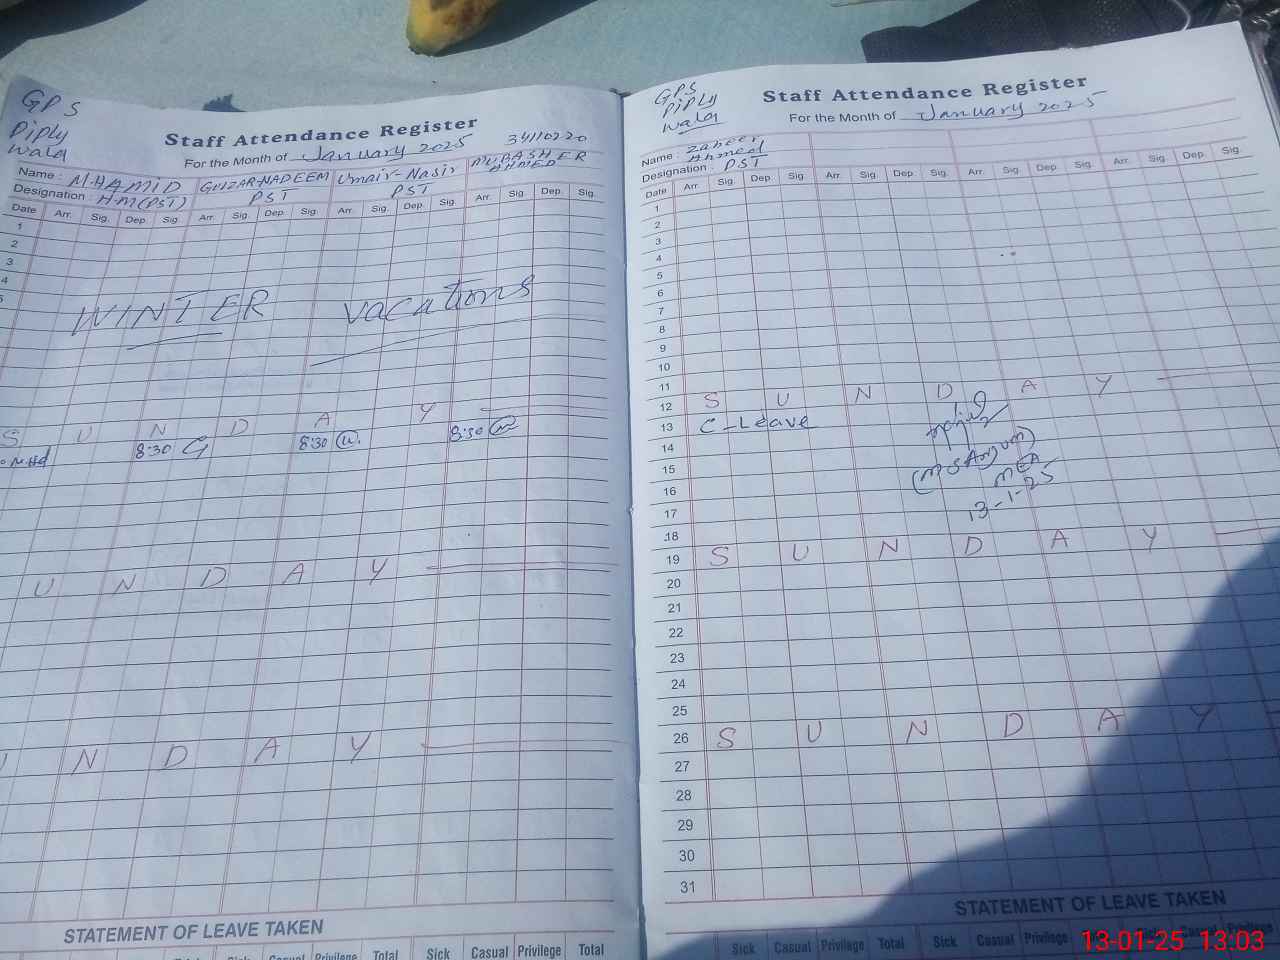 GPS
Piply
Wala
Staff Attendance Register
For the Month of January 2025
34110220
Name : M.HAMiD GULZAR-NADEEM Umair-Nasir MUBASHER AHMED
Designation : H.M(PST) PST PST
Date Arr. Sig. Dep. Sig. Arr. Sig. Dep. Sig. Arr. Sig. Dep. Sig. Arr. Sig. Dep. Sig.
1
2
3
4
5
WINTER vacations
S U N D A Y
8:30 8:30 8:30
U N D A Y
N D A Y
STATEMENT OF LEAVE TAKEN
Total Sick Casual Privilege Total
GPS
Piply
wala
Staff Attendance Register
For the Month of January 2025
Name : Zaheer Ahmed
Designation : PST
Date Arr. Sig. Dep. Sig. Arr. Sig. Dep. Sig. Arr. Sig. Dep. Sig. Arr. Sig. Dep. Sig.
1
2
3
4
5
6
7
8
9
10
11
12 S U N D A Y
13 C-Leave
14
15
16 MEA
17 13-1-25
18
19 S U N D A Y
20
21
22
23
24
25
26 S U N D A Y
27
28
29
30
31
STATEMENT OF LEAVE TAKEN
Sick Casual Privilege Total Sick Casual Privilege Total Sick Casual Privilege
13-01-25 13:03